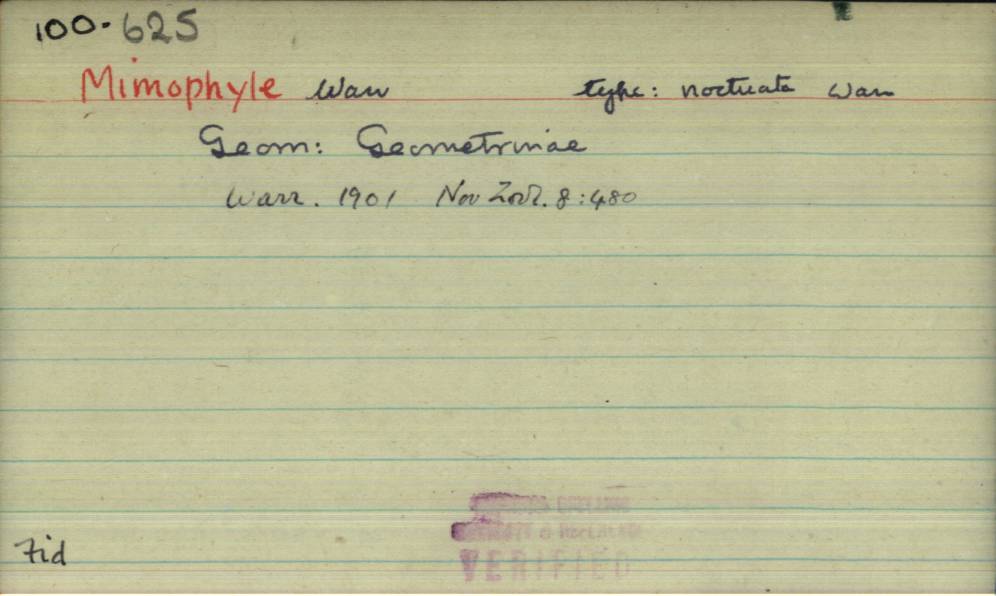 100.625
Mimophyle Warr type: noctuata Warr
Geom: Geometrinae
Warr. 1901 Nov Zool. 8:480
VERIFIED